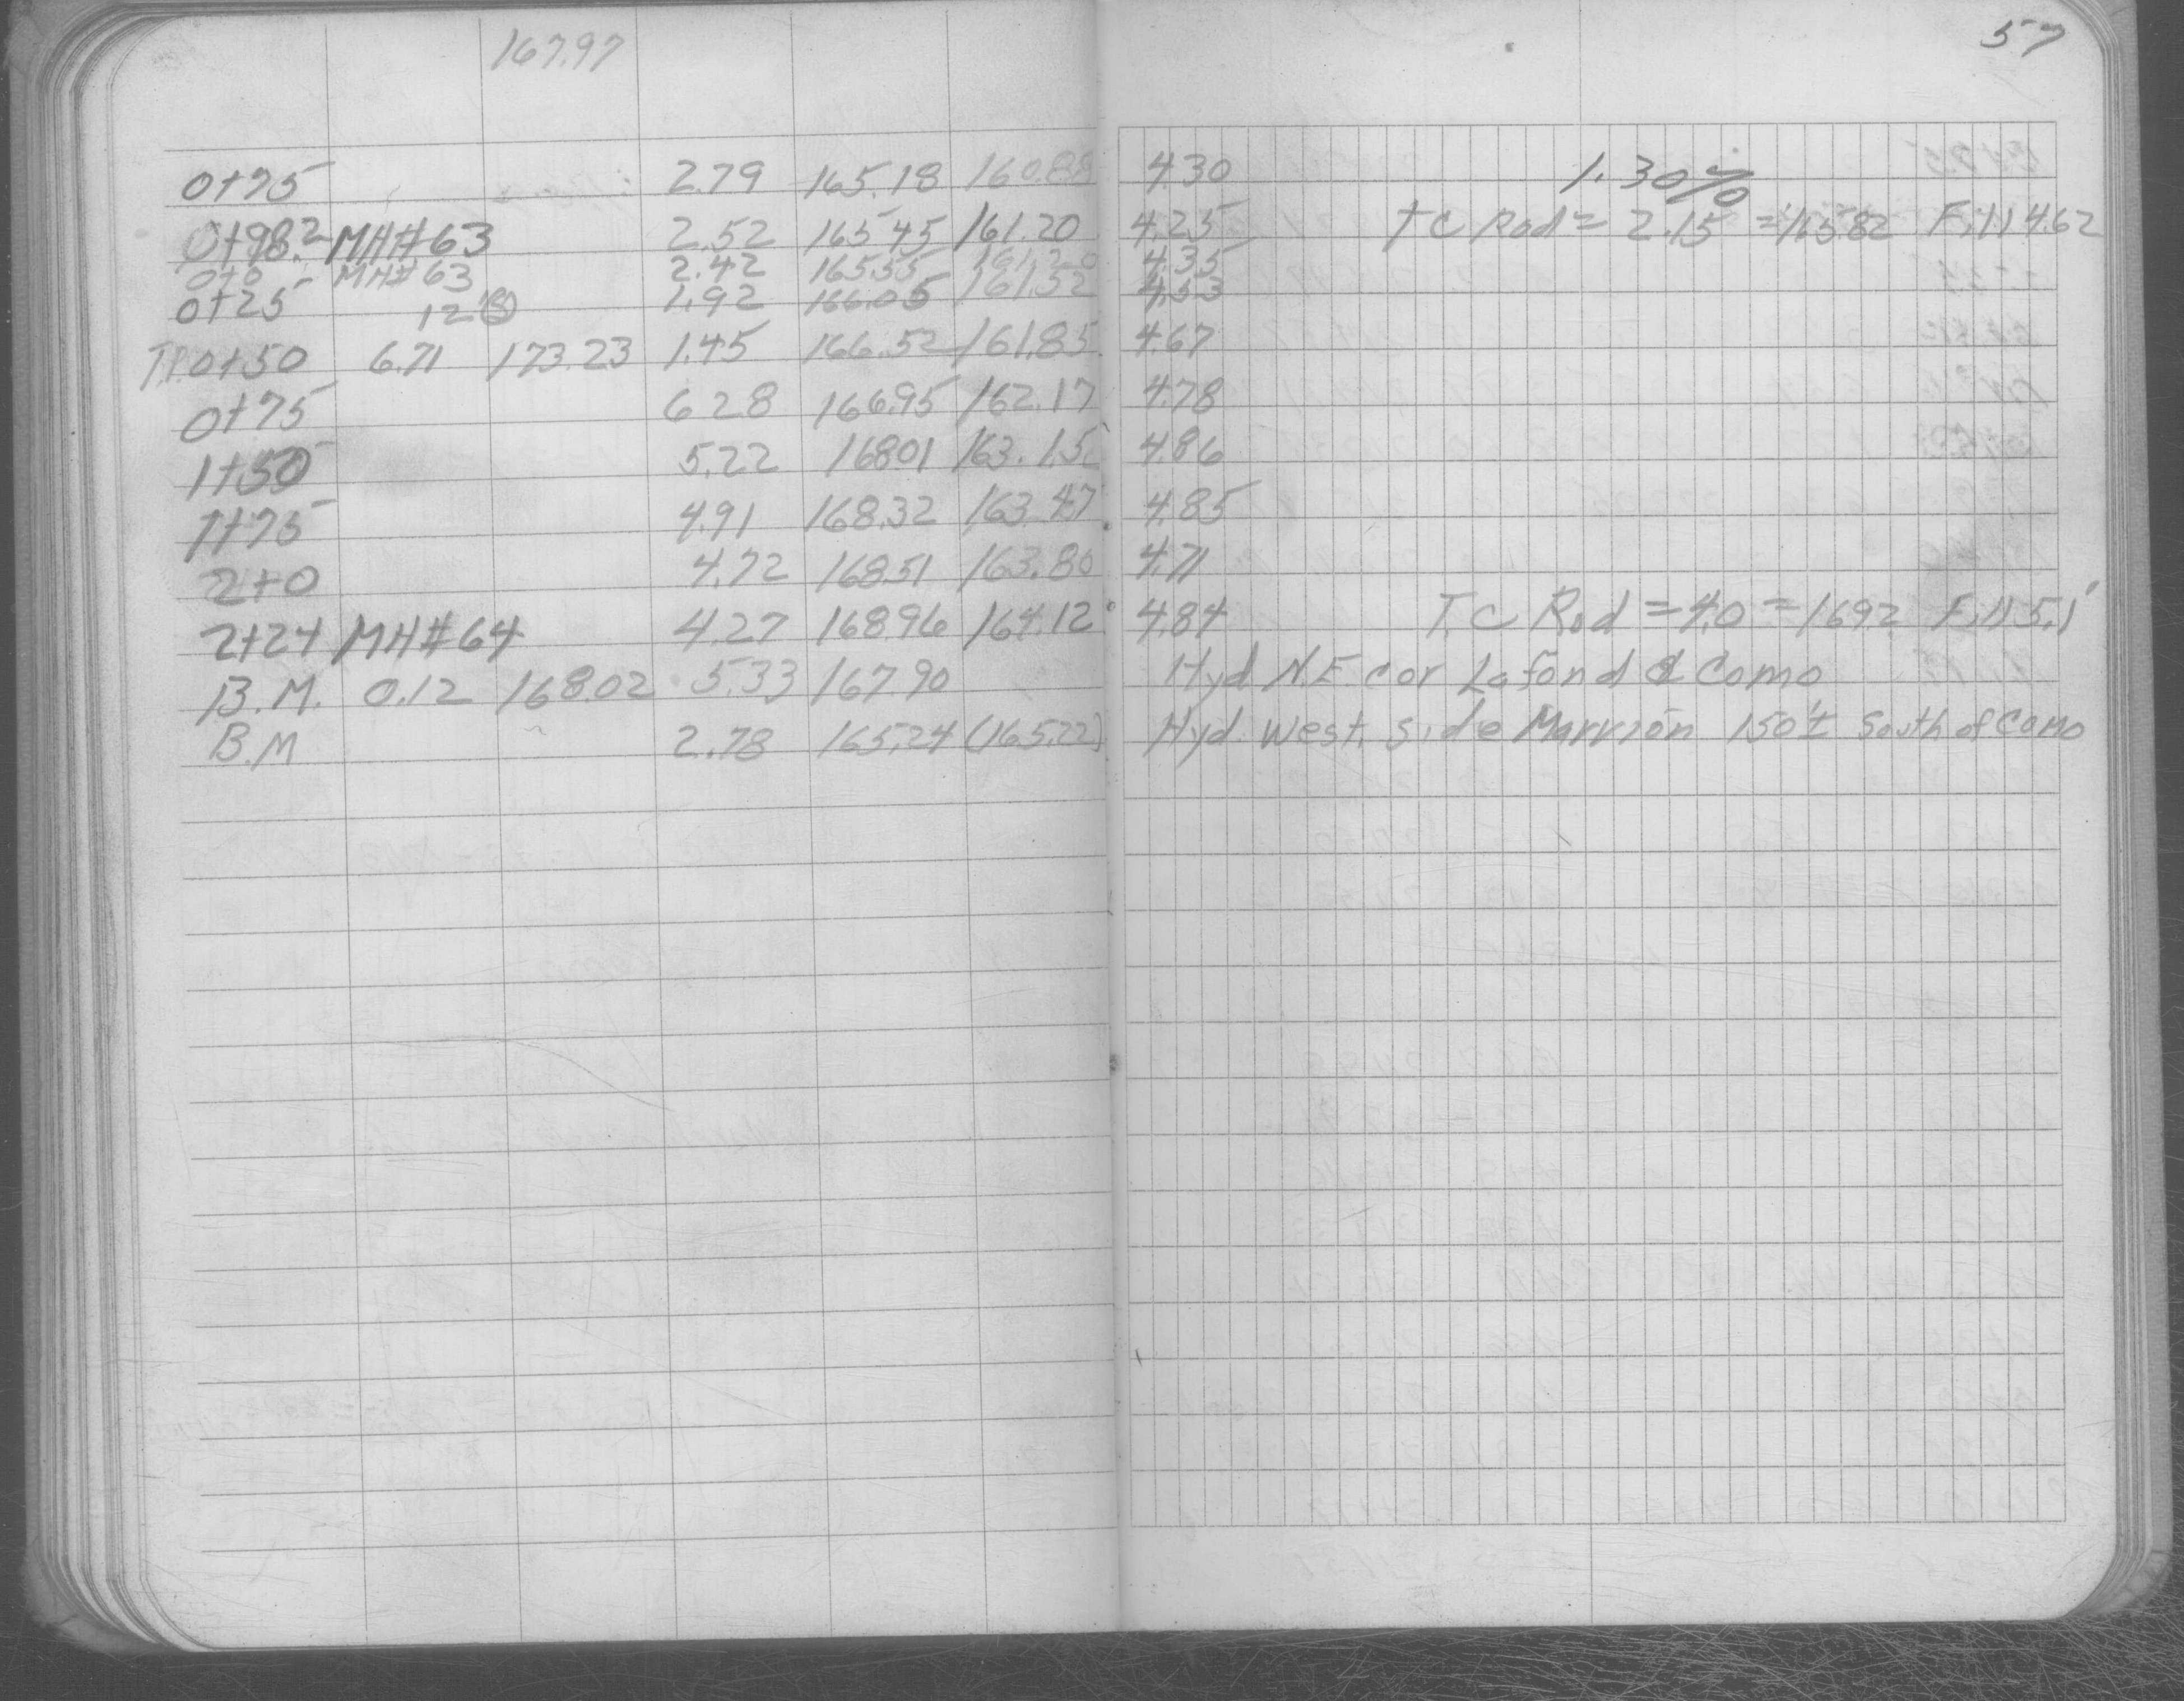 167.97 57
0+75 2.79 165.18 160.88 4.30 1.30%
0+98.2 MH#63 2.52 165.45 161.20 4.25 T C Rod = 2.15 = 165.82 Fill 4.62
0+0 MH#63 2.42 165.55 161.20 4.35
0+25 12" 1.92 166.05 161.52 4.53
T.P. 0+50 6.71 173.23 1.45 166.52 161.85 4.67
0+75 6 28 166.95 162.17 4.78
1+50 5.22 168.01 163.15 4.86
1+75 4.91 168.32 163.47 4.85
2+0 4.72 168.51 163.80 4.71
2+24 MH#64 4.27 168.96 164.12 4.84 T.C Rod = 4.0 = 169.2 Fill 5.1'
B.M. 0.12 168.02 5.33 167.90 Hyd N.E. cor Lafond & Como
B.M 2.78 165.24 (165.22) Hyd. West. Side Marrion 150'± South of Como